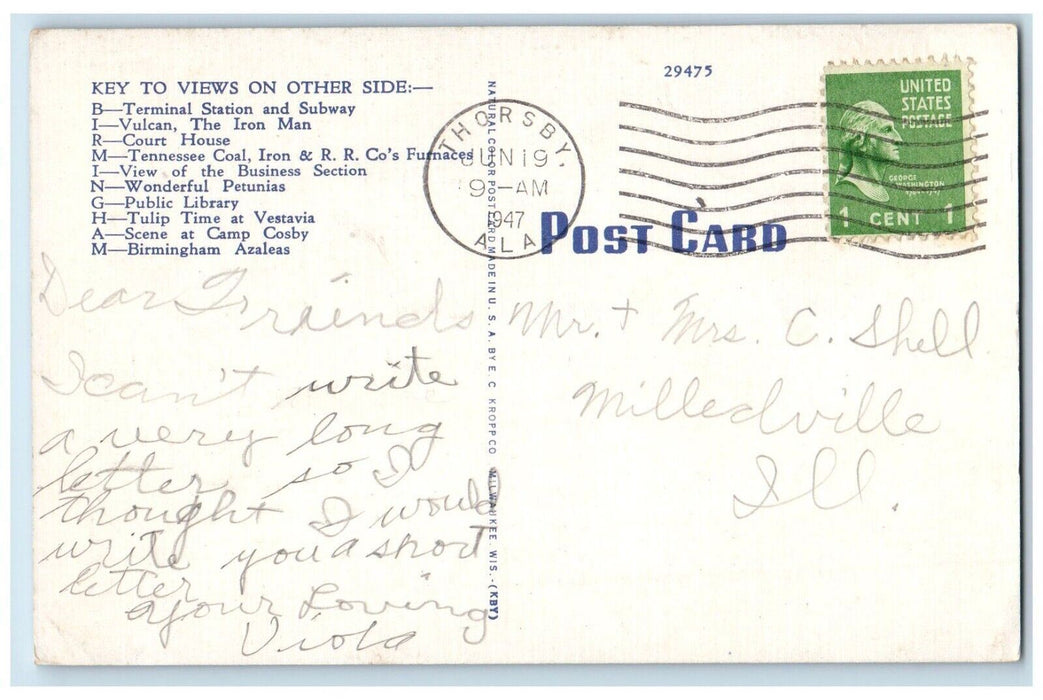 KEY TO VIEWS ON OTHER SIDE:—
B—Terminal Station and Subway
I—Vulcan, The Iron Man
R—Court House
M—Tennessee Coal, Iron & R. R. Co's Furnaces
I—View of the Business Section
N—Wonderful Petunias
G—Public Library
H—Tulip Time at Vestavia
A—Scene at Camp Cosby
M—Birmingham Azaleas
Dear Friends
I can't write
a very long
letter so I
thought I would
write you a short
letter
your Loving
Viola
NATURAL COLOR POST CARD MADE IN U. S. A. BY E. C. KROPP CO. MILWAUKEE, WIS.-(KBY)
THORSBY,
JUN 19
9-AM
1947
ALA
29475
UNITED
STATES
POSTAGE
GEORGE
WASHINGTON
1 CENT 1
POST CARD
Mr. + Mrs. C. Shell
Milledville
Ill.